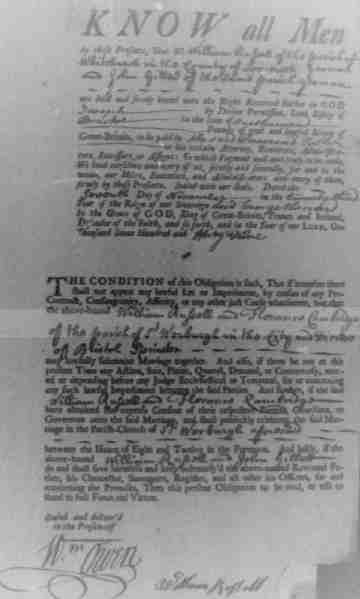 KNOW all Men
by these Presents, That We William Russell of the parish of
Whitchurch in the County of
and John Gillett of the said parish
are held and firmly bound unto the Right Reverend Father in GOD
Joseph by Divine Permission, Lord Bishop of
Bristol in the Sum of
Pounds, of good and lawful Money of
Great-Britain, to be paid to the said Reverend Father
or his certain Attorney, Executors, Administra-
tors, Successors, or Assigns: To which Payment well and truly to be made,
We bind ourselves and every of us, jointly and severally, for and in the
whole, our Heirs, Executors, and Administrators, and every of them,
firmly by these Presents. Sealed with our Seals. Dated the
Day of November in the
Year of the Reign of our Sovereign Lord George the
by the Grace of GOD, King of Great-Britain, France and Ireland,
Defender of the Faith, and so forth, and in the Year of our LORD, One
Thousand Seven Hundred and
THE CONDITION of this Obligation is such, That if hereafter there
shall not appear any lawful Let or Impediment, by reason of any Pre-
Contract, Consanguinity, Affinity, or any other just Cause whatsoever, but that
the above-bound William Russell and Florence
of the parish of St Werburgh in the City and
of Bristol Spinster
may lawfully solemnize Marriage together. And also, if there be not at this
present Time any Action, Suit, Plaint, Quarrel, Demand, or Controversy, mov-
ed or depending before any Judge Ecclesiastical or Temporal, for or concerning
any such lawful Impediment between the said Parties. And further, if the said
William Russell and Florence
have obtained the express Consent of their respective Parents, Guardians, or
Governors unto the said Marriage, and shall publickly solemnize the said Mar-
riage in the Parish-Church of St Werburgh aforesaid
between the Hours of Eight and Twelve in the Forenoon. And lastly, if the
above-bound William Russell and John Gillett
do and shall save harmless and keep indemnify'd the above-named Reverend Fa-
ther, his Chancellor, Surrogates, Register, and all other his Officers, for and
concerning the Premisses, Then this present Obligation to be void, or else to
stand in full Force and Virtue.
Sealed and deliver'd
in the Presence of
Wm Owen
William Russell